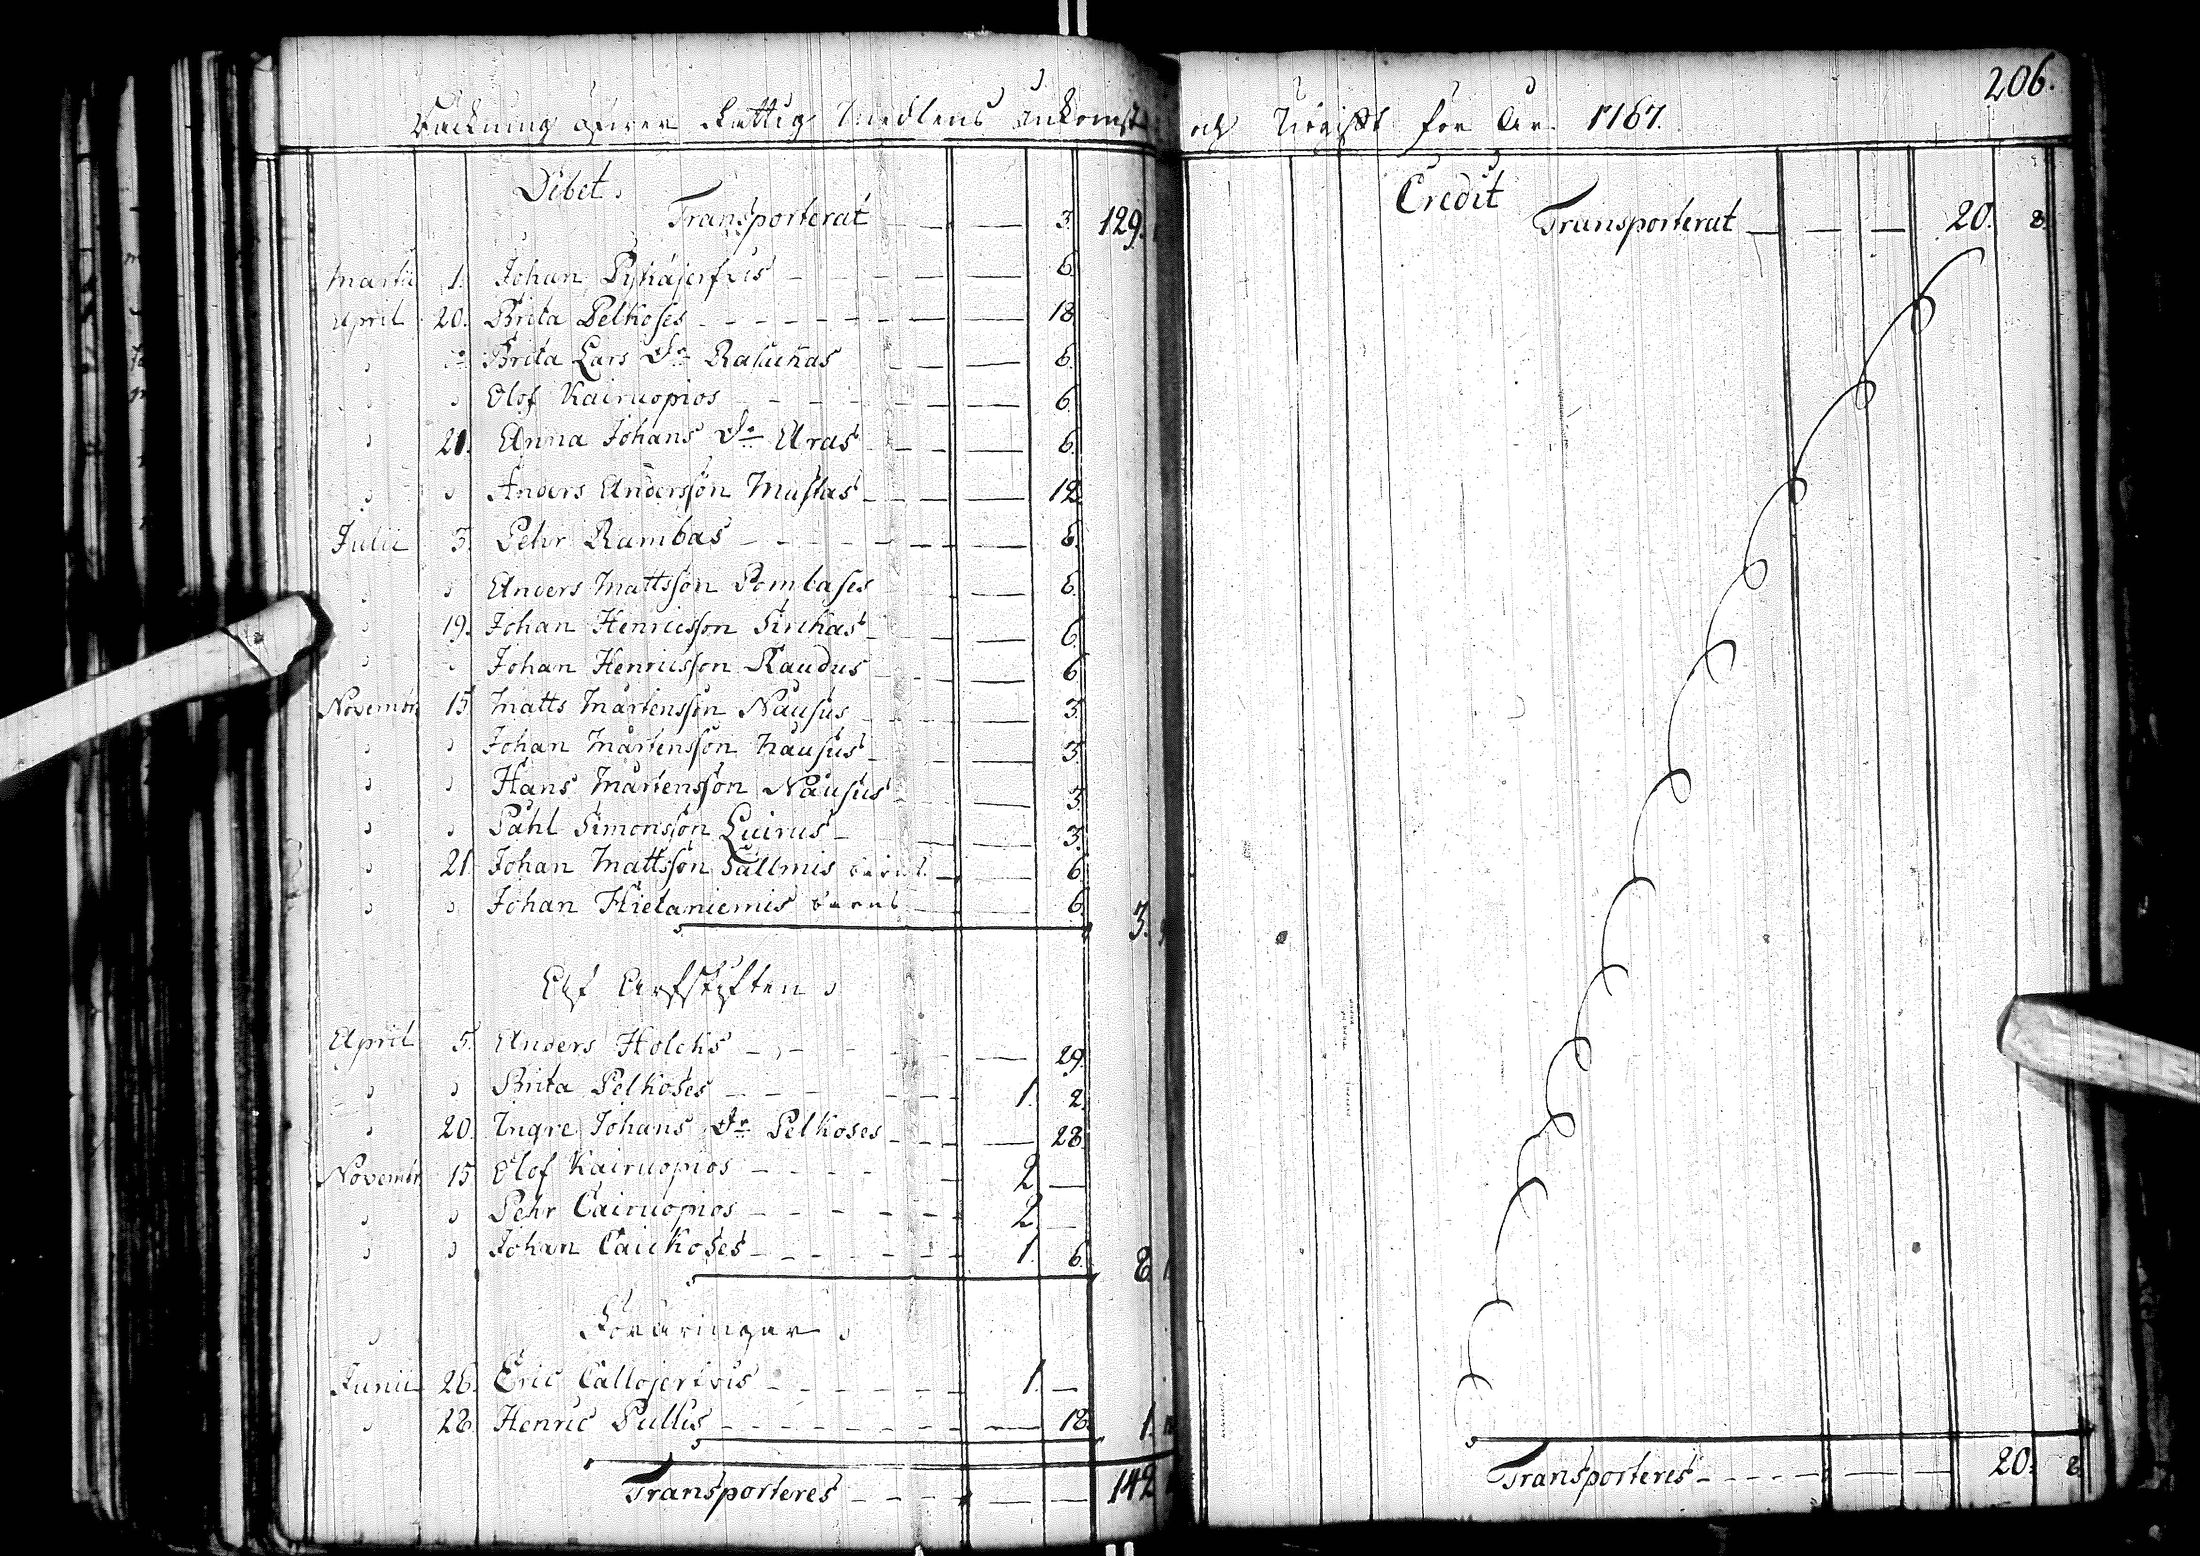 Räkning öfwer Fattig Medlens Inkomst och Utgift för År 1767.
206.
Debet.
Transporterat 3. 129.
Martii 1. Johan Pyhäjerfvis 6.
April 20. Brita Pelkoses 18.
Brita Lars Dr Rasunas 6.
Olof Kairuopios 6.
21. Anna Johans Dr Uras 6.
Anders Andersson Mustas 12.
Julii 3. Pehr Rambas 6.
Anders Mattsson Pombases 6.
19. Johan Henricsson Sirckas 6.
Johan Henricsson Raudus 6.
Novembr 15 Matts Mårtensson Nausus 3.
Johan Mårtensson Nausus 3.
Hans Mårtensson Nausus 3.
Påhl Simonsson Luirus 3.
21 Johan Mattsson Sallmis barnb. 6.
Johan Hietaniemis barnb 6. 3.
Af Arfskiften
April 5. Anders Holcks 29.
Brita Pelkoses 1. 2.
20. Ingre Johans Dr Pelkoses 28.
Novembr 15 Olof Kairuopios 2
Pehr Cairuopios 2
Johan Caickoses 1. 6. 8.
Föräringar
Junii 26. Eric Callojerfvis 1.
28. Henric Pullis 18. 1.
Transporteres 142
Credit
Transporterat 20. 8.
Transporteres 20. 8